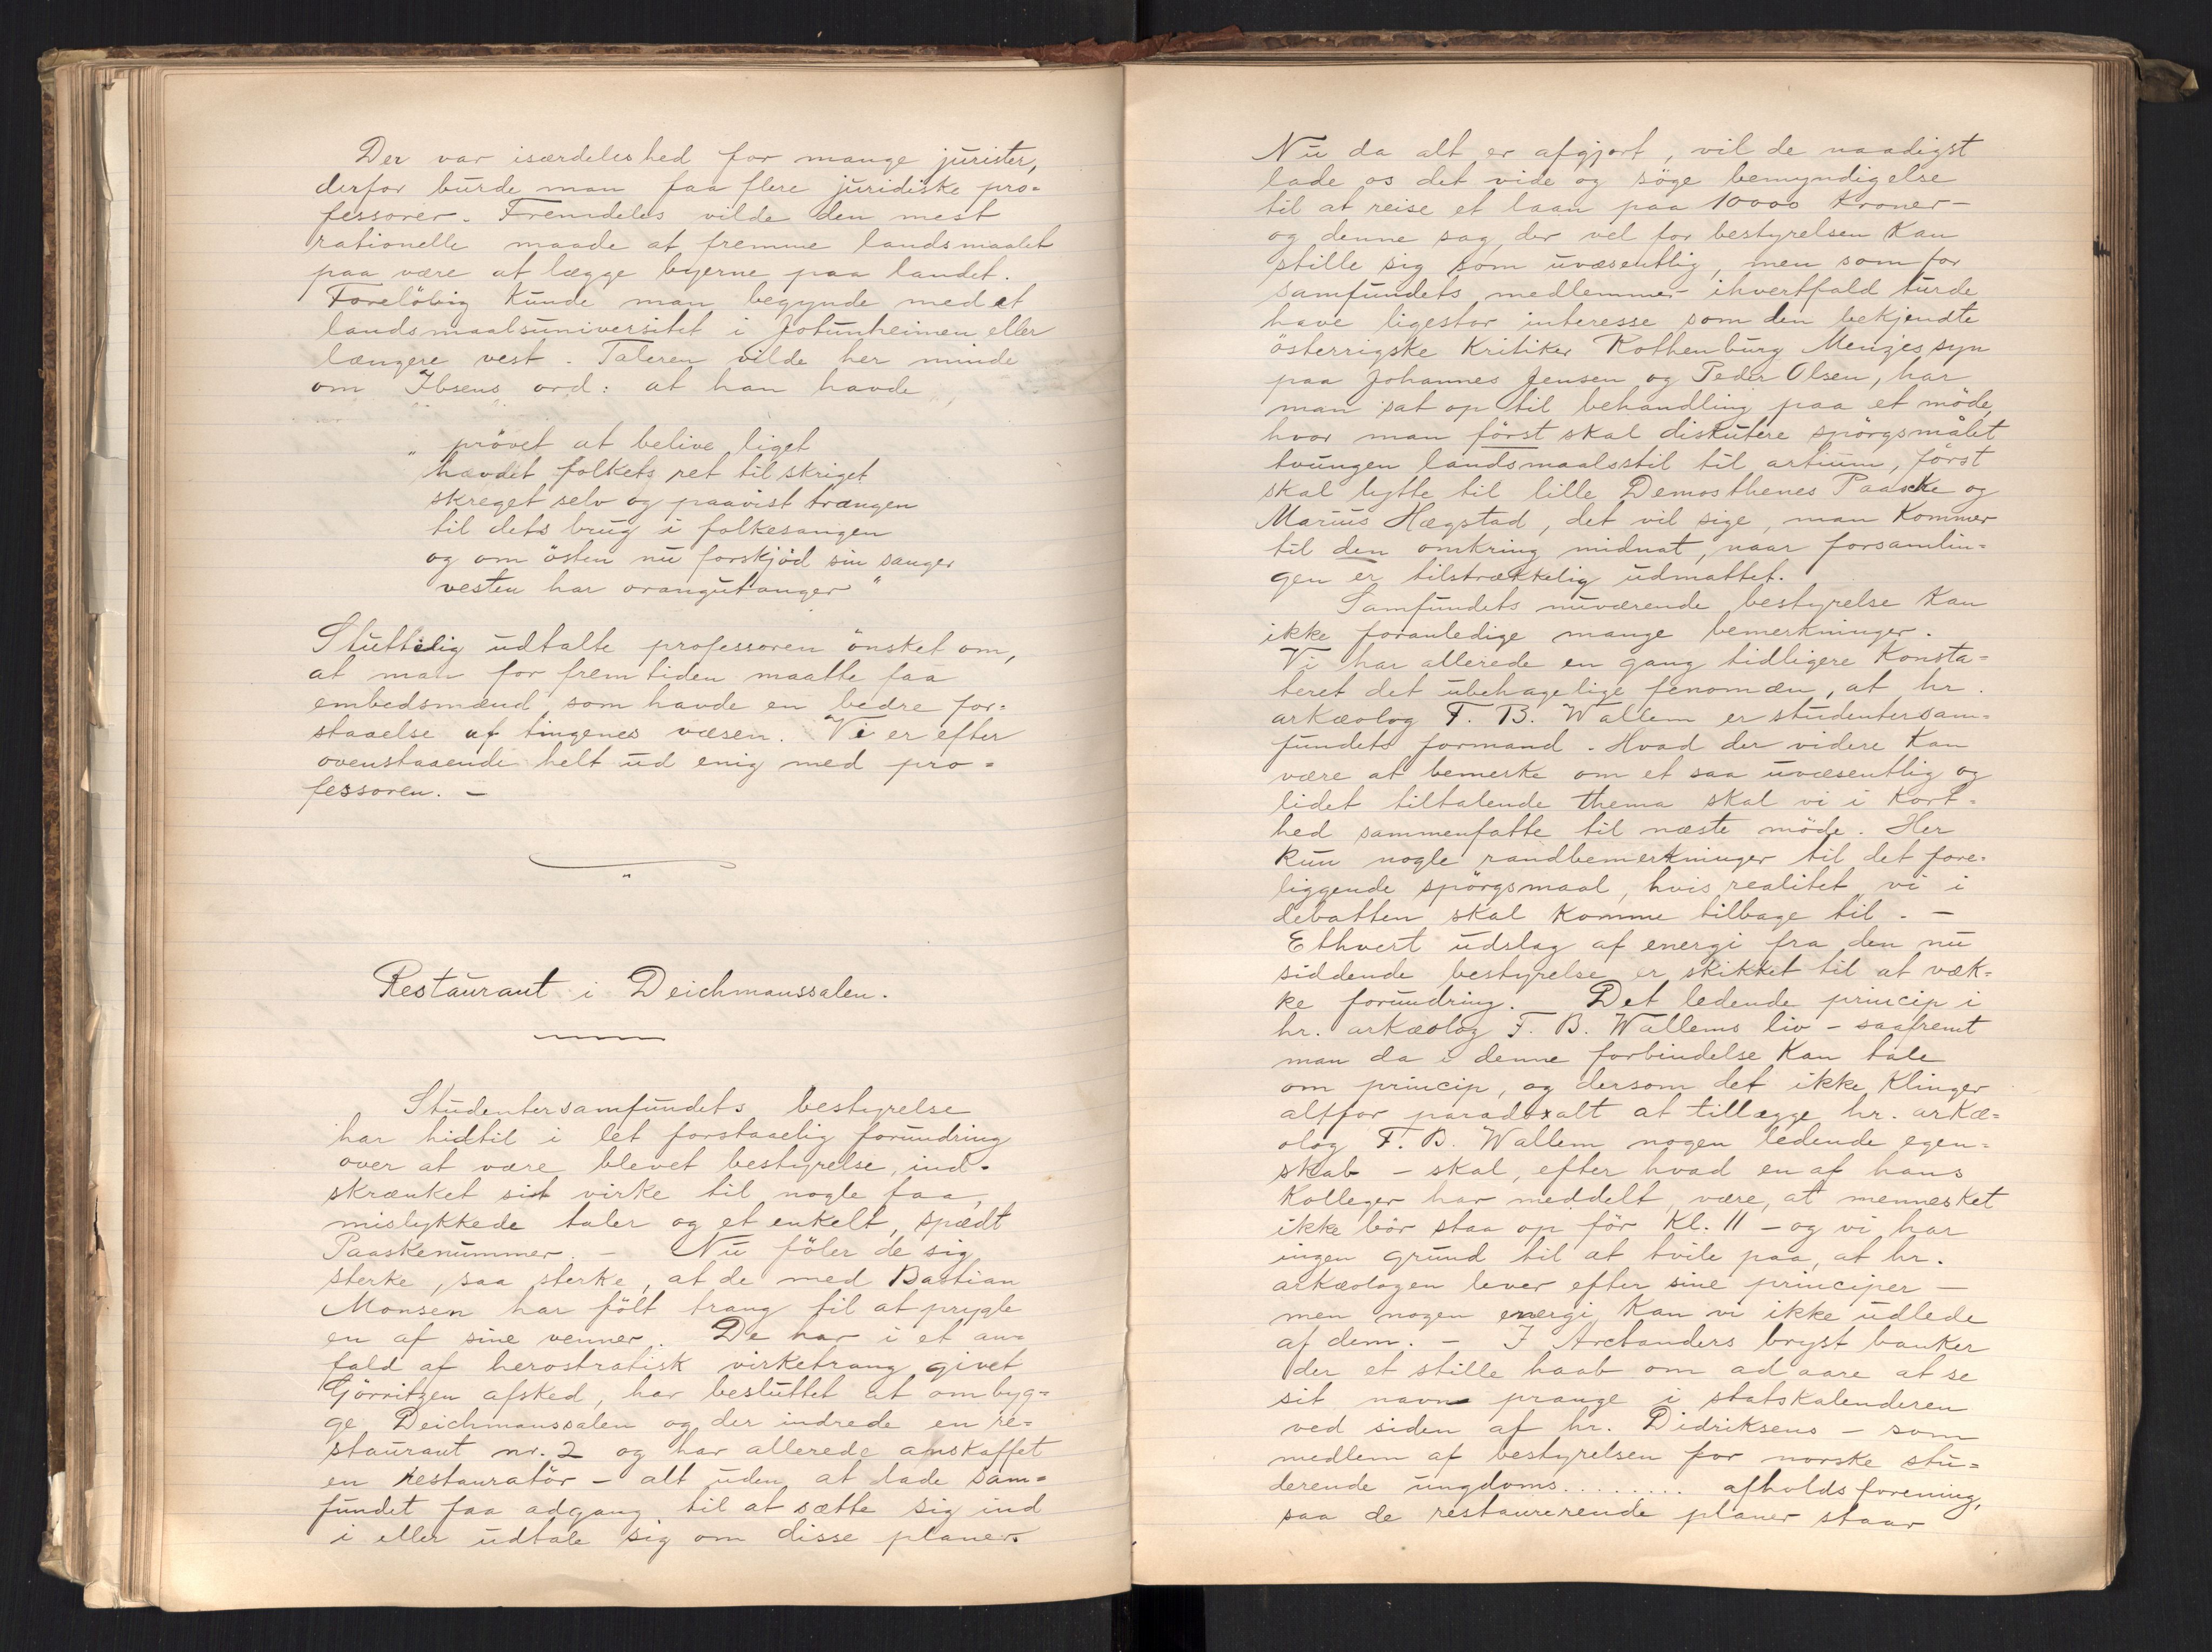 Der var isærdeleshed for mange jurister,
derfor burde man faa flere juridiske pro=
fessorer. Fremdeles vilde den mest
rationelle maade at fremme landsmaalet
paa være at lægge byerne paa landet.
Forelöbig kunde man begynde med et
landsmaalsuniversitet i Jotunheimen eller
længere vest. Taleren vilde her minde
om Ibsens ord: at han havde
„ prövet at belive liget
hævdet folkets ret til skriget
skreget selv og paavist trangen
til dets brug i folkesangen
og om östen nu forskjöd sin sanger
vesten har orangutanger"
Sluttelig udtalte professoren önsket om,
at man for fremtiden maatte faa
embedsmænd som havde en bedre for=
staaelse af tingenes væsen. Vi er efter
ovenstaaende helt ud enig med pro=
fessoren. –
Restaurant i Deichmanssalen.
Studentersamfundets bestyrelse
har hidtil i let forstaaelig forundring
over at være blevet bestyrelse, ind=
skrænket sit virke til nogle faa,
mislykkede taler og et enkelt, spædt
Paaskenummer. – Nu föler de sig
sterke, saa sterke, at de med Bastian
Monsen har fölt trang til at prygle
en af sine venner. De har i et an=
fald af herostratisk virketrang givet
Görritzen afsked, har besluttet at ombyg=
ge Deichmanssalen og der indrede en re=
staurant nr. 2 og har allerede anskaffet
en restauratör – alt uden at lade sam=
fundet faa adgang til at sætte sig ind
i eller udtale sig om disse planer.
Nu da alt er afgjort, vil de naadigst
lade os det vide og söge bemyndigelse
til at reise et laan paa 10000 Kroner –
og denne sag, der vel for bestyrelsen kan
stille sig som uvæsentlig, men som for
samfundets medlemmer ihvertfald turde
have ligestor interesse som den bekjendte
österrigske kritiker Rothenburg Menzes syn
paa Johannes Jensen og Peder Olsen, har
man sat op til behandling paa et möde,
hvor man först skal diskutere spörgsmålet
tvungen landsmaalsstil til artium, först
skal lytte til lille Demosthenes Paasche og
Marius Hægstad, det vil sige, man kommer
til den omkring midnat, naar forsamlin=
gen er tilstrækkelig udmattet.
Samfundets nuværende bestyrelse kan
ikke foranledige mange bemerkninger.
Vi har allerede en gang tidligere konsta=
teret det ubehagelige fenomæn, at hr.
arkæolog F. B. Wallem er studentersam=
fundets formand. Hvad der videre kan
være at bemerke om et saa uvæsentlig og
lidet tiltalende thema skal vi i kort=
hed sammenfatte til næste möde. Her
kun nogle randbemerkninger til det fore=
liggende spörgsmaal, hvis realitet vi i
debatten skal komme tilbage til. –
Ethvert udslag af energi fra den nu
siddende bestyrelse er skikket til at væk=
ke forundring. Det ledende princip i
hr. arkæolog F. B. Wallems liv – saafremt
man da i denne forbindelse kan tale
om princip, og dersom det ikke klinger
altfor paradoxalt at tillægge hr. arkæ=
olog F. B. Wallem nogen ledende egen=
skab – skal, efter hvad en af hans
kolleger har meddelt, være, at mennesket
ikke bör staa op för kl. 11 – og vi har
ingen grund til at tvile paa, at hr.
arkæologen lever efter sine principer –
men nogen energi kan vi ikke udlede
af dem. – I Arctanders bryst banker
der et stille haab om ad aare at se
sit navn prange i statskalenderen
ved siden af hr. Didriksens – som
medlem af bestyrelsen for norske stu=
derende ungdoms........ afholdsforening,
saa de restaurerende planer staar